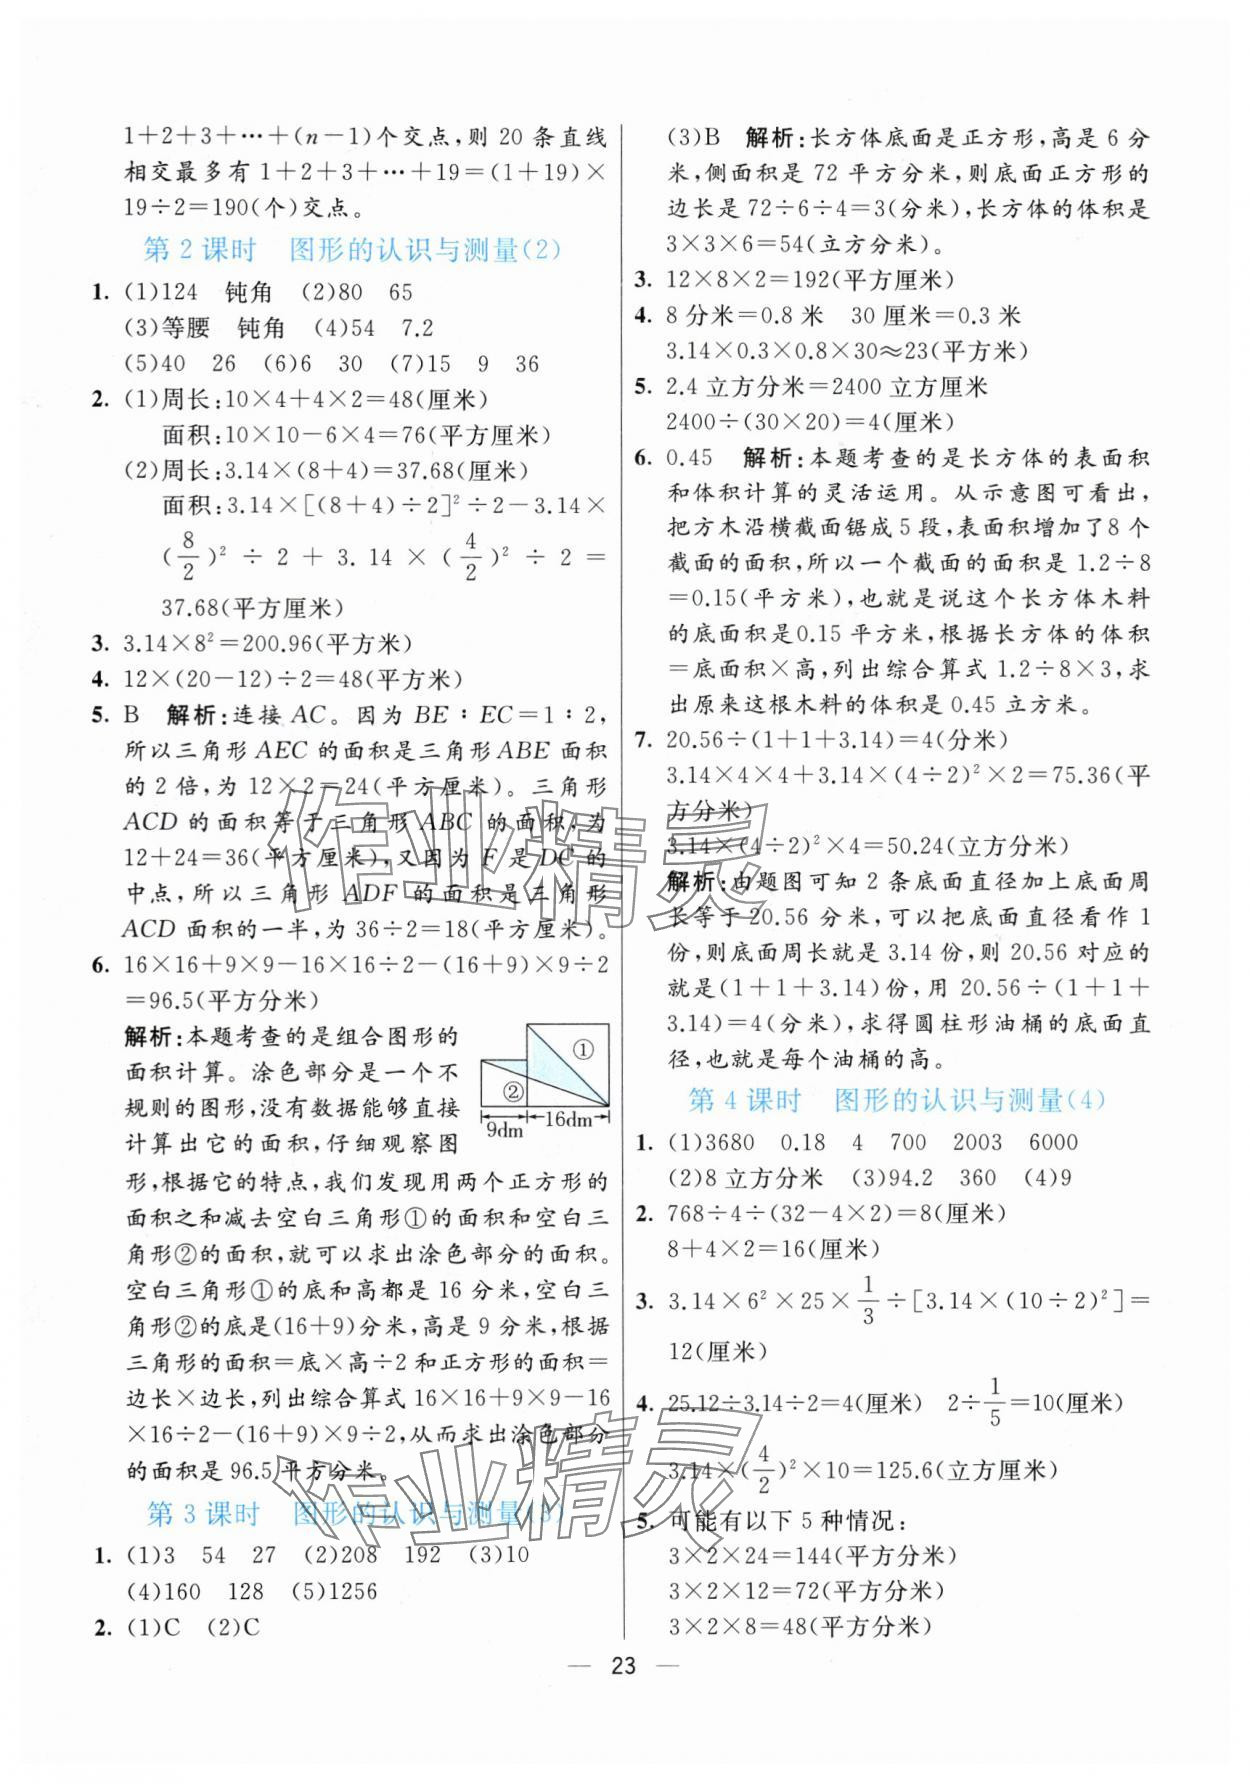 1+2+3+…+(n-1)个交点,则 20 条直线
相交最多有 1+2+3+…+19=(1+19)×
19÷2=190(个)交点。
第 2 课时 图形的认识与测量(2)
1. (1)124 钝角 (2)80 65
(3)等腰 钝角 (4)54 7.2
(5)40 26 (6)6 30 (7)15 9 36
2. (1)周长:10×4+4×2=48(厘米)
面积:10×10-6×4=76(平方厘米)
(2)周长:3.14×(8+4)=37.68(厘米)
面积:3.14×[(8+4)÷2]²÷2-3.14×
(8/2)²÷2+3.14×(4/2)²÷2=
37.68(平方厘米)
3. 3.14×8²=200.96(平方米)
4. 12×(20-12)÷2=48(平方米)
5. B 解析:连接 AC。因为 BE∶EC=1∶2,
所以三角形 AEC 的面积是三角形 ABE 面积
的 2 倍,为 12×2=24(平方厘米)。三角形
ACD 的面积等于三角形 ABC 的面积,为
12+24=36(平方厘米),又因为 F 是 DC 的
中点,所以三角形 ADF 的面积是三角形
ACD 面积的一半,为 36÷2=18(平方厘米)。
6. 16×16+9×9-16×16÷2-(16+9)×9÷2
=96.5(平方分米)
解析:本题考查的是组合图形的
面积计算。涂色部分是一个不
规则的图形,没有数据能够直接
计算出它的面积,仔细观察图
形,根据它的特点,我们发现用两个正方形的
面积之和减去空白三角形①的面积和空白三
角形②的面积,就可以求出涂色部分的面积。
空白三角形①的底和高都是 16 分米,空白三
角形②的底是(16+9)分米,高是 9 分米,根据
三角形的面积=底×高÷2 和正方形的面积=
边长×边长,列出综合算式 16×16+9×9-16
×16÷2-(16+9)×9÷2,从而求出涂色部分
的面积是 96.5 平方分米。
①
②
9dm
16dm
第 3 课时 图形的认识与测量(3)
1. (1)3 54 27 (2)208 192 (3)10
(4)160 128 (5)1256
2. (1)C (2)C
(3)B 解析:长方体底面是正方形,高是 6 分
米,侧面积是 72 平方分米,则底面正方形的
边长是 72÷6÷4=3(分米),长方体的体积是
3×3×6=54(立方分米)。
3. 12×8×2=192(平方厘米)
4. 8 分米=0.8 米 30 厘米=0.3 米
3.14×0.3×0.8×30≈23(平方米)
5. 2.4 立方分米=2400 立方厘米
2400÷(30×20)=4(厘米)
6. 0.45 解析:本题考查的是长方体的表面积
和体积计算的灵活运用。从示意图可看出,
把方木沿横截面锯成 5 段,表面积增加了 8 个
截面的面积,所以一个截面的面积是 1.2÷8
=0.15(平方米),也就是说这个长方体木料
的底面积是 0.15 平方米,根据长方体的体积
=底面积×高,列出综合算式 1.2÷8×3,求
出原来这根木料的体积是 0.45 立方米。
7. 20.56÷(1+1+3.14)=4(分米)
3.14×4×4+3.14×(4÷2)²×2=75.36(平
方分米)
3.14×(4÷2)²×4=50.24(立方分米)
解析:由题图可知 2 条底面直径加上底面周
长等于 20.56 分米,可以把底面直径看作 1
份,则底面周长就是 3.14 份,则 20.56 对应的
就是(1+1+3.14)份,用 20.56÷(1+1+
3.14)=4(分米),求得圆柱形油桶的底面直
径,也就是每个油桶的高。
第 4 课时 图形的认识与测量(4)
1. (1)3680 0.18 4 700 2003 6000
(2)8 立方分米 (3)94.2 360 (4)9
2. 768÷4÷(32-4×2)=8(厘米)
8+4×2=16(厘米)
3. 3.14×6²×25×1/3÷[3.14×(10÷2)²]=
12(厘米)
4. 25.12÷3.14÷2=4(厘米) 2÷1/5=10(厘米)
3.14×(4/2)²×10=125.6(立方厘米)
5. 可能有以下 5 种情况:
3×2×24=144(平方厘米)
3×2×12=72(平方厘米)
3×2×8=48(平方厘米)
— 23 —
作业精灵
作业精灵